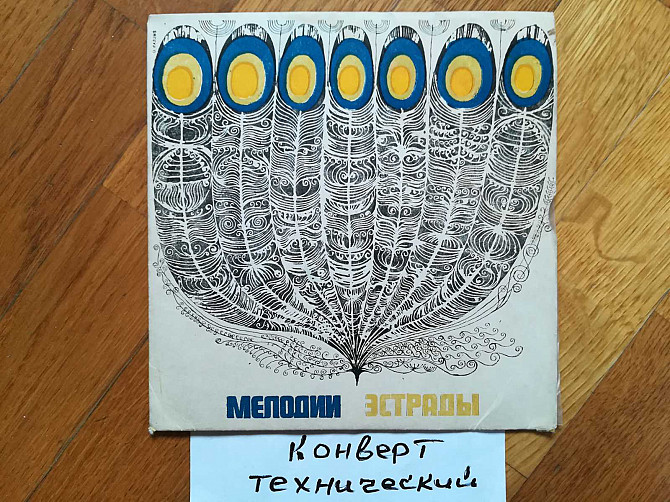 МЕЛОДИИ ЭСТРАДЫ
Конверт
технический